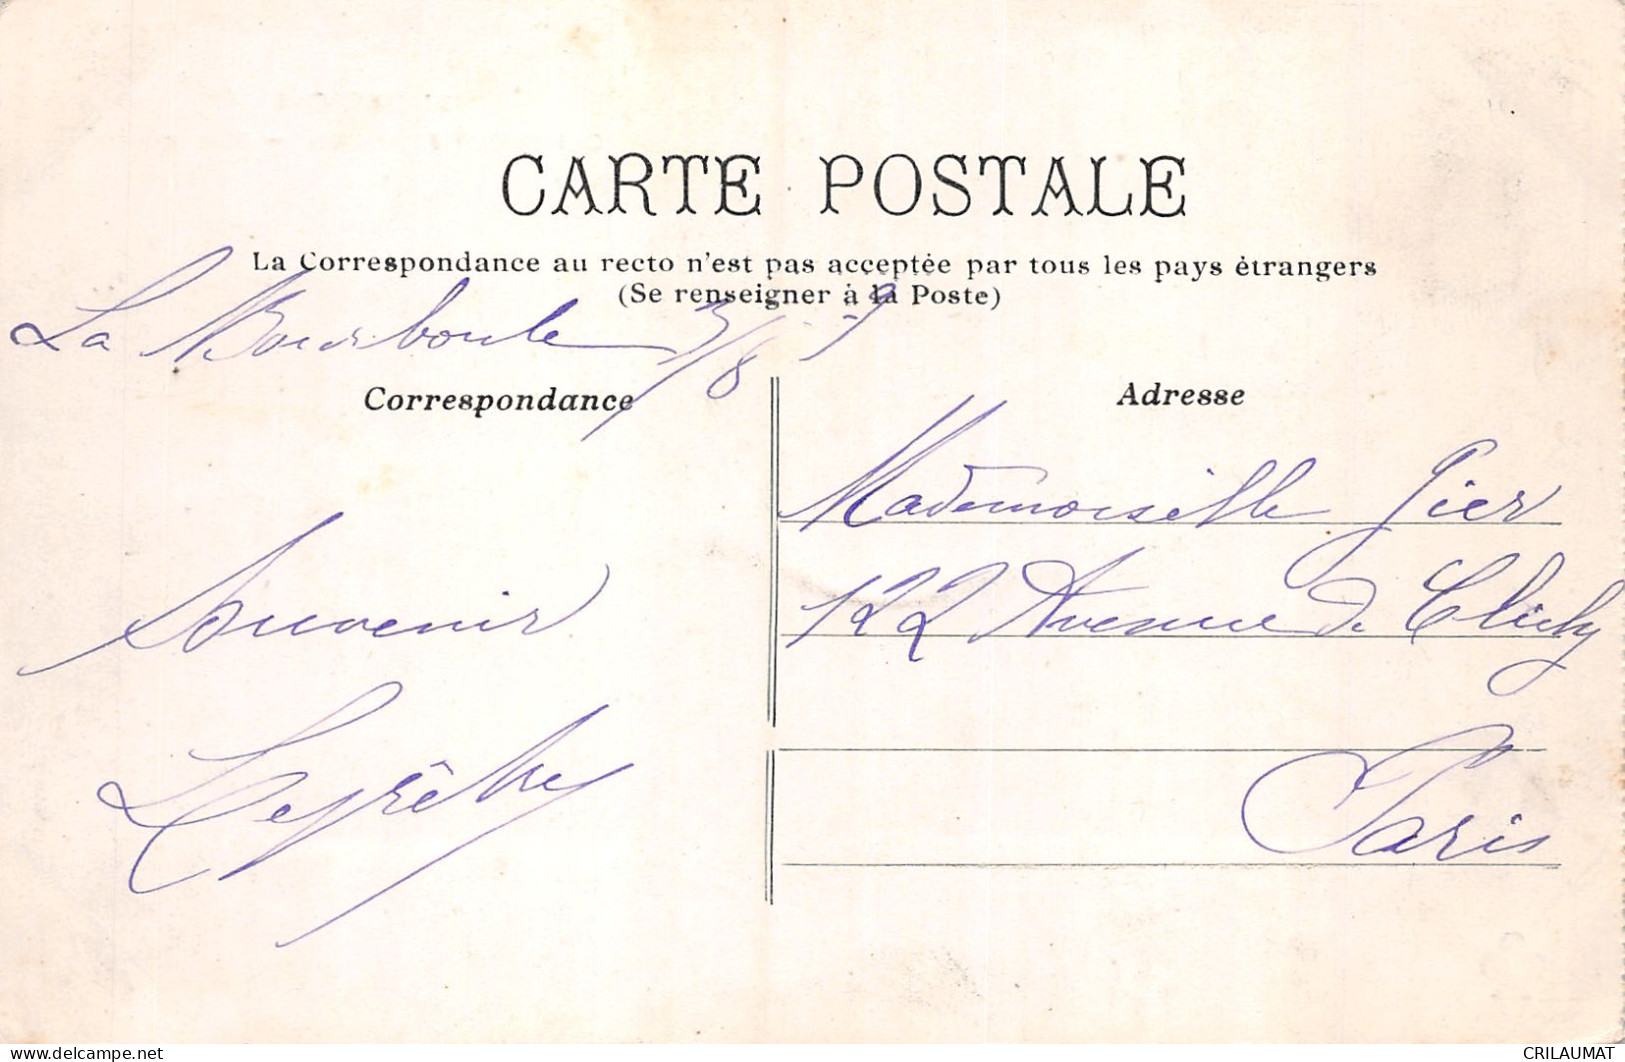 CARTE POSTALE
La Correspondance au recto n'est pas acceptée par tous les pays étrangers
(Se renseigner à la Poste)
La Bourboule 3/8
Correspondance
Adresse
Mademoiselle Gier
122 Avenue de Clichy
Paris
Souvenir
www.delcampe.net
CRILAUMAT